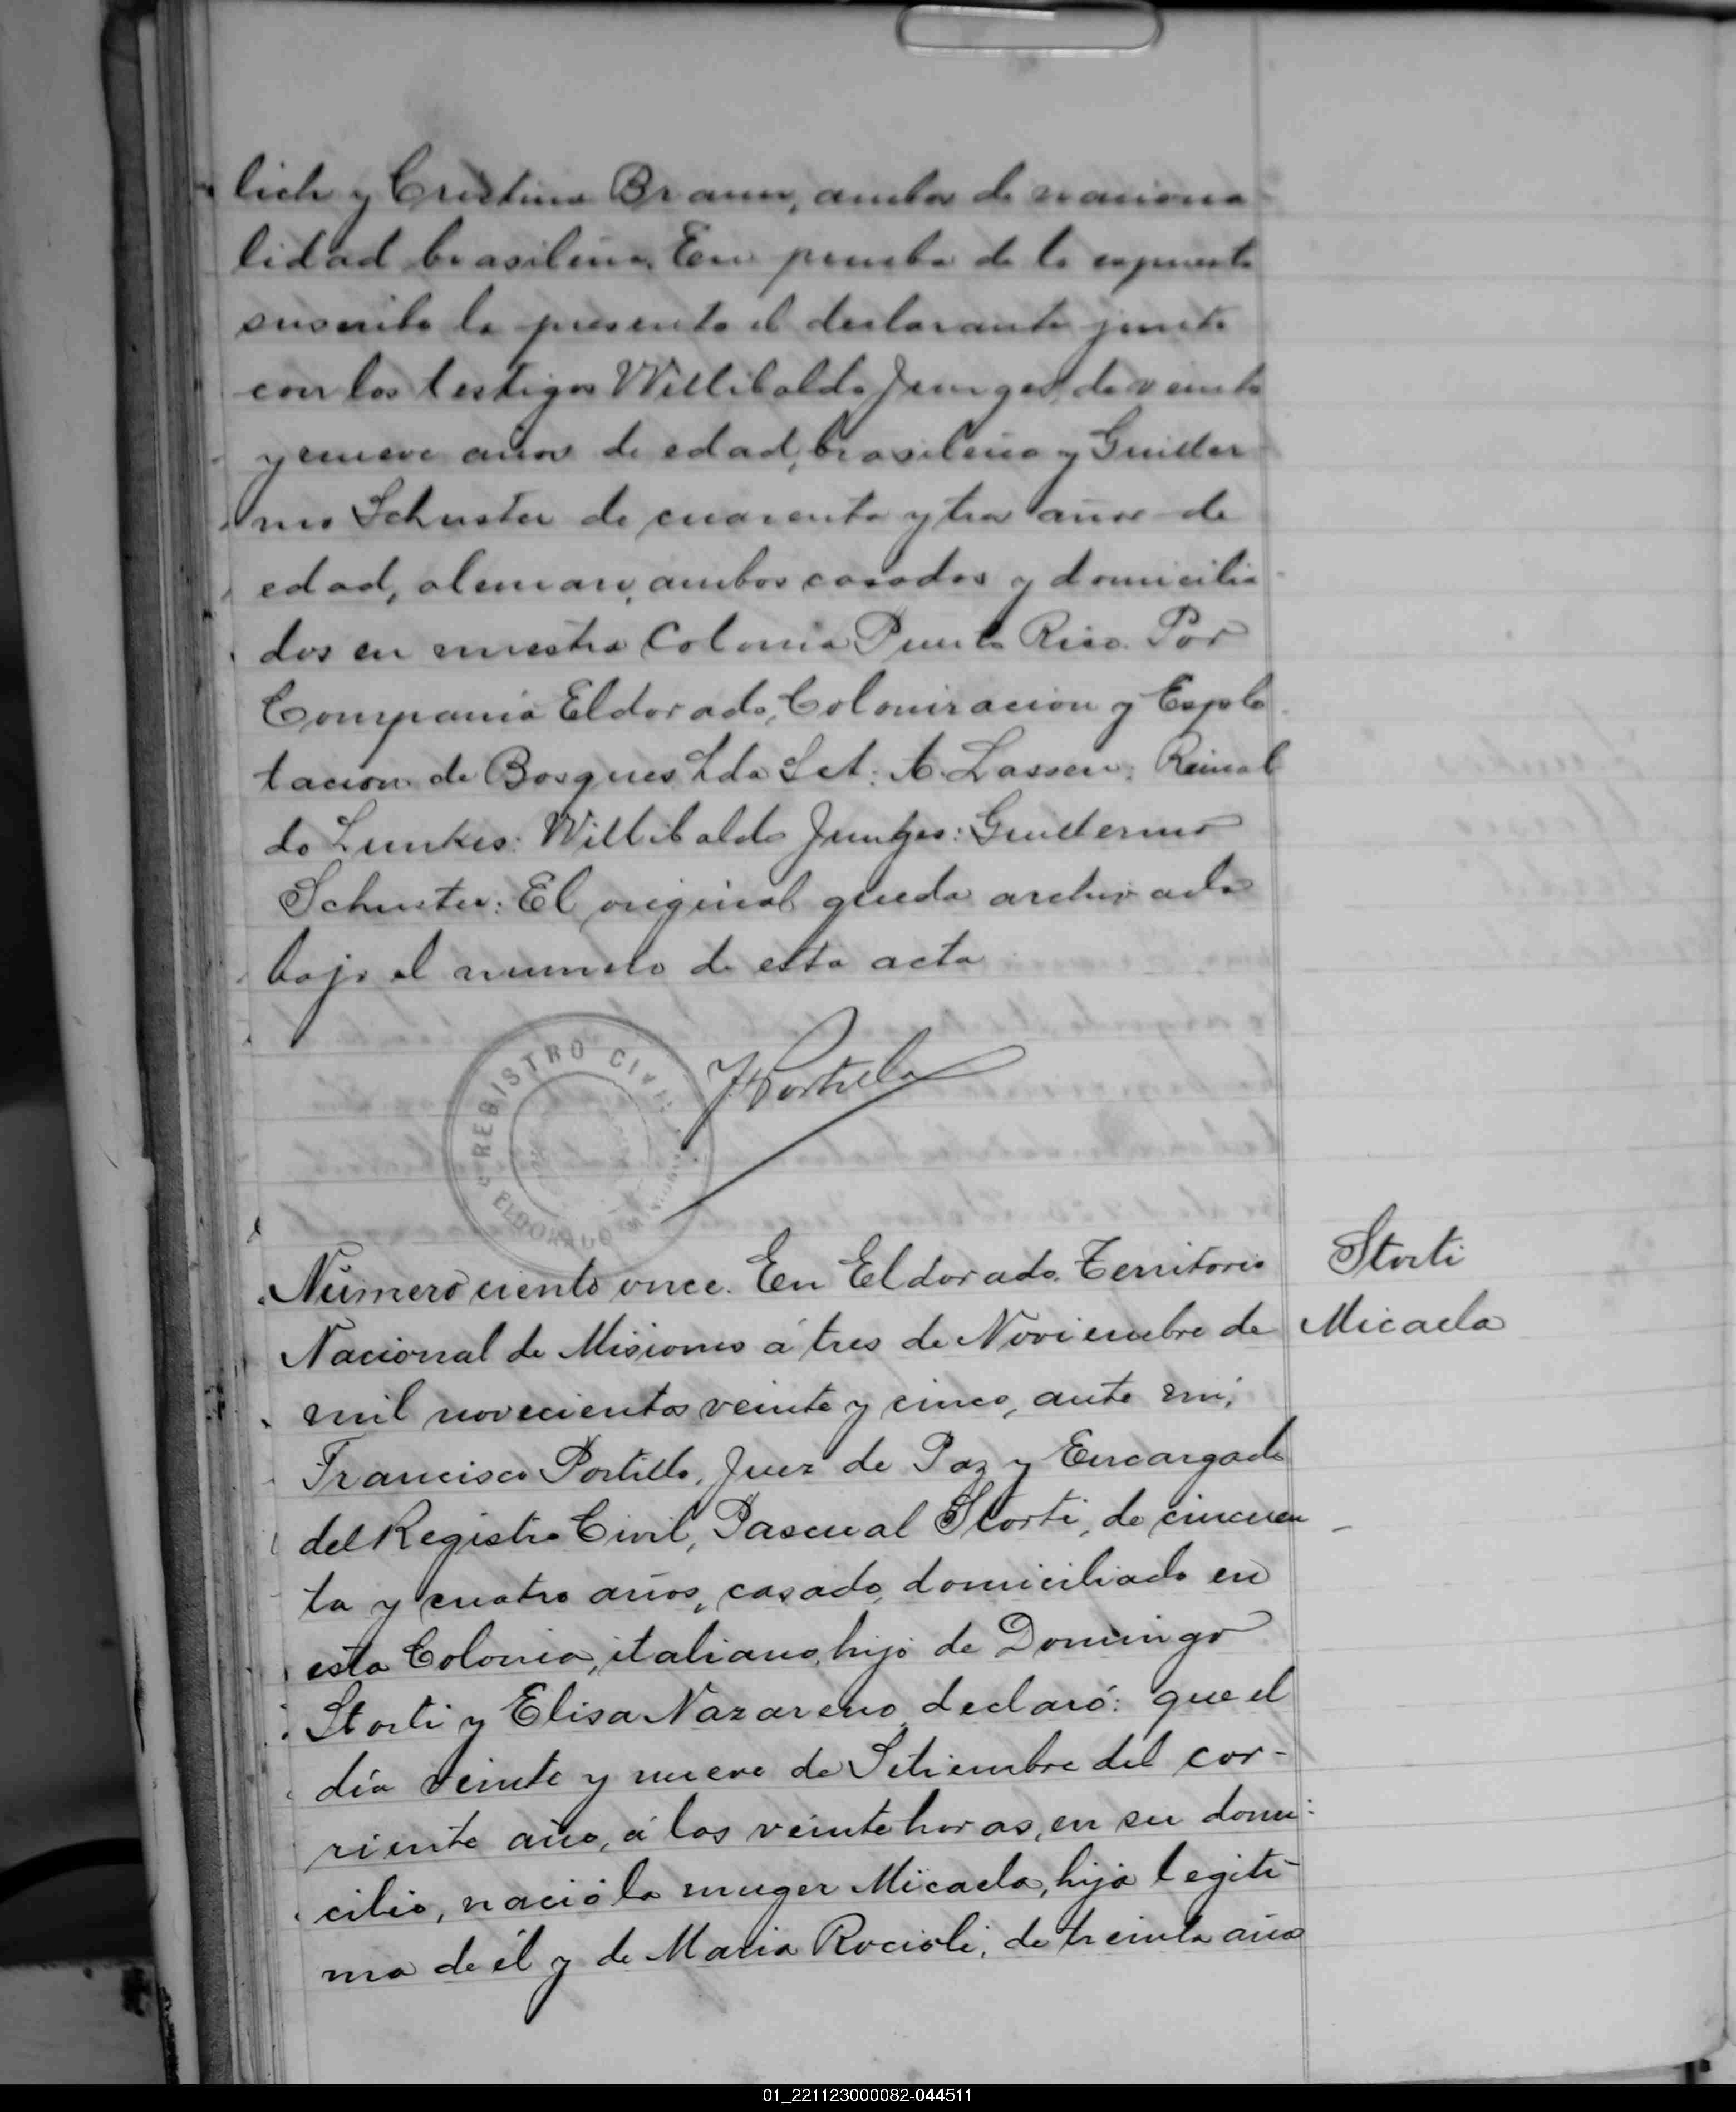 lich y Cristina Braun, ambos de naciona
lidad brasileña. En prueba de lo expuesto
suscribe la presente el declarante junto
con los testigos Willibaldo Junges, de veinte
y nueve años de edad, brasileño y Guiller
mo Schuster de cuarenta y tres años de
edad, aleman, ambos casados y domicilia
dos en nuestra Colonia Puerto Rico. Por
Compania Eldorado, Colonizacion y Explo
tacion de Bosques Lda Sct. A. Lassen: Reinal
do Lunkes: Willibaldo Junges: Guillermo
Schuster: El original queda archivado
bajo el numero de esta acta
REGISTRO CIVIL
ELDORADO
FPortillo
Número ciento once. En Eldorado. Territorio
Nacional de Misiones á tres de Noviembre de
mil novecientos veinte y cinco, ante mi,
Francisco Portillo, Juez de Paz y Encargado
del Registro Civil, Pascual Storti, de cincuen
ta y cuatro años, casado, domiciliado en
esta Colonia, italiano, hijo de Domingo
Storti y Elisa Nazareno, declaró: que el
día veinte y nueve de Setiembre del cor-
riente año, á las veinte horas, en su domi-
cilio, nació la muger Micaela, hija legiti-
ma de él y de Maria Rocioli, de treinta años
Storti
Micaela
01_221123000082-044511